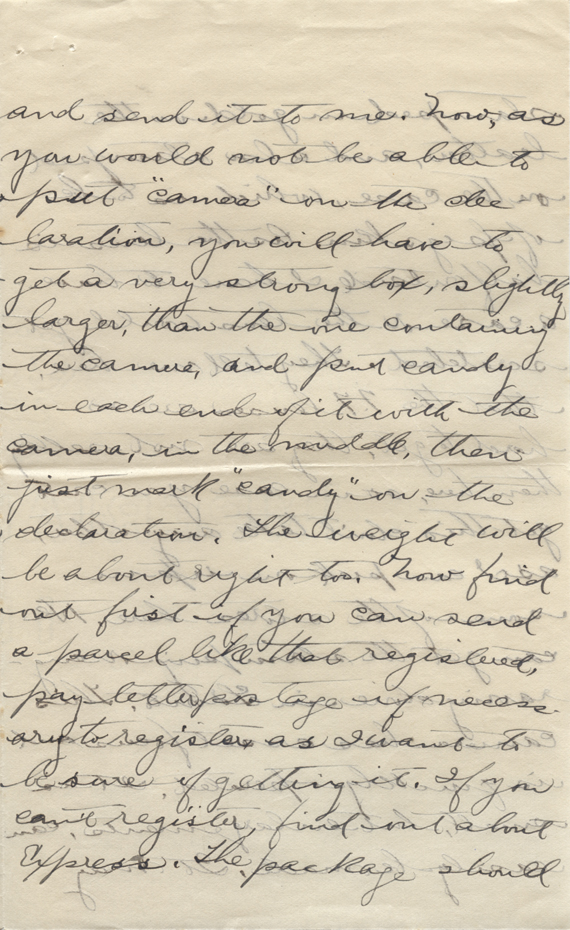 and send it to me. Now, as
you would not be able to
put "camera" on the dec
laration, you will have to
get a very strong box, slightly
larger, than the one containing
the camera, and put candy
in each end of it with the
camera, in the middle, then
just mark "candy" on the
declaration. The weight will
be about right too. Now find
out first if you can send
a parcel like that registered,
pay letter postage if necess-
ary to register as I want to
be sure of getting it. If you
can't register, find out about
Express. The package should